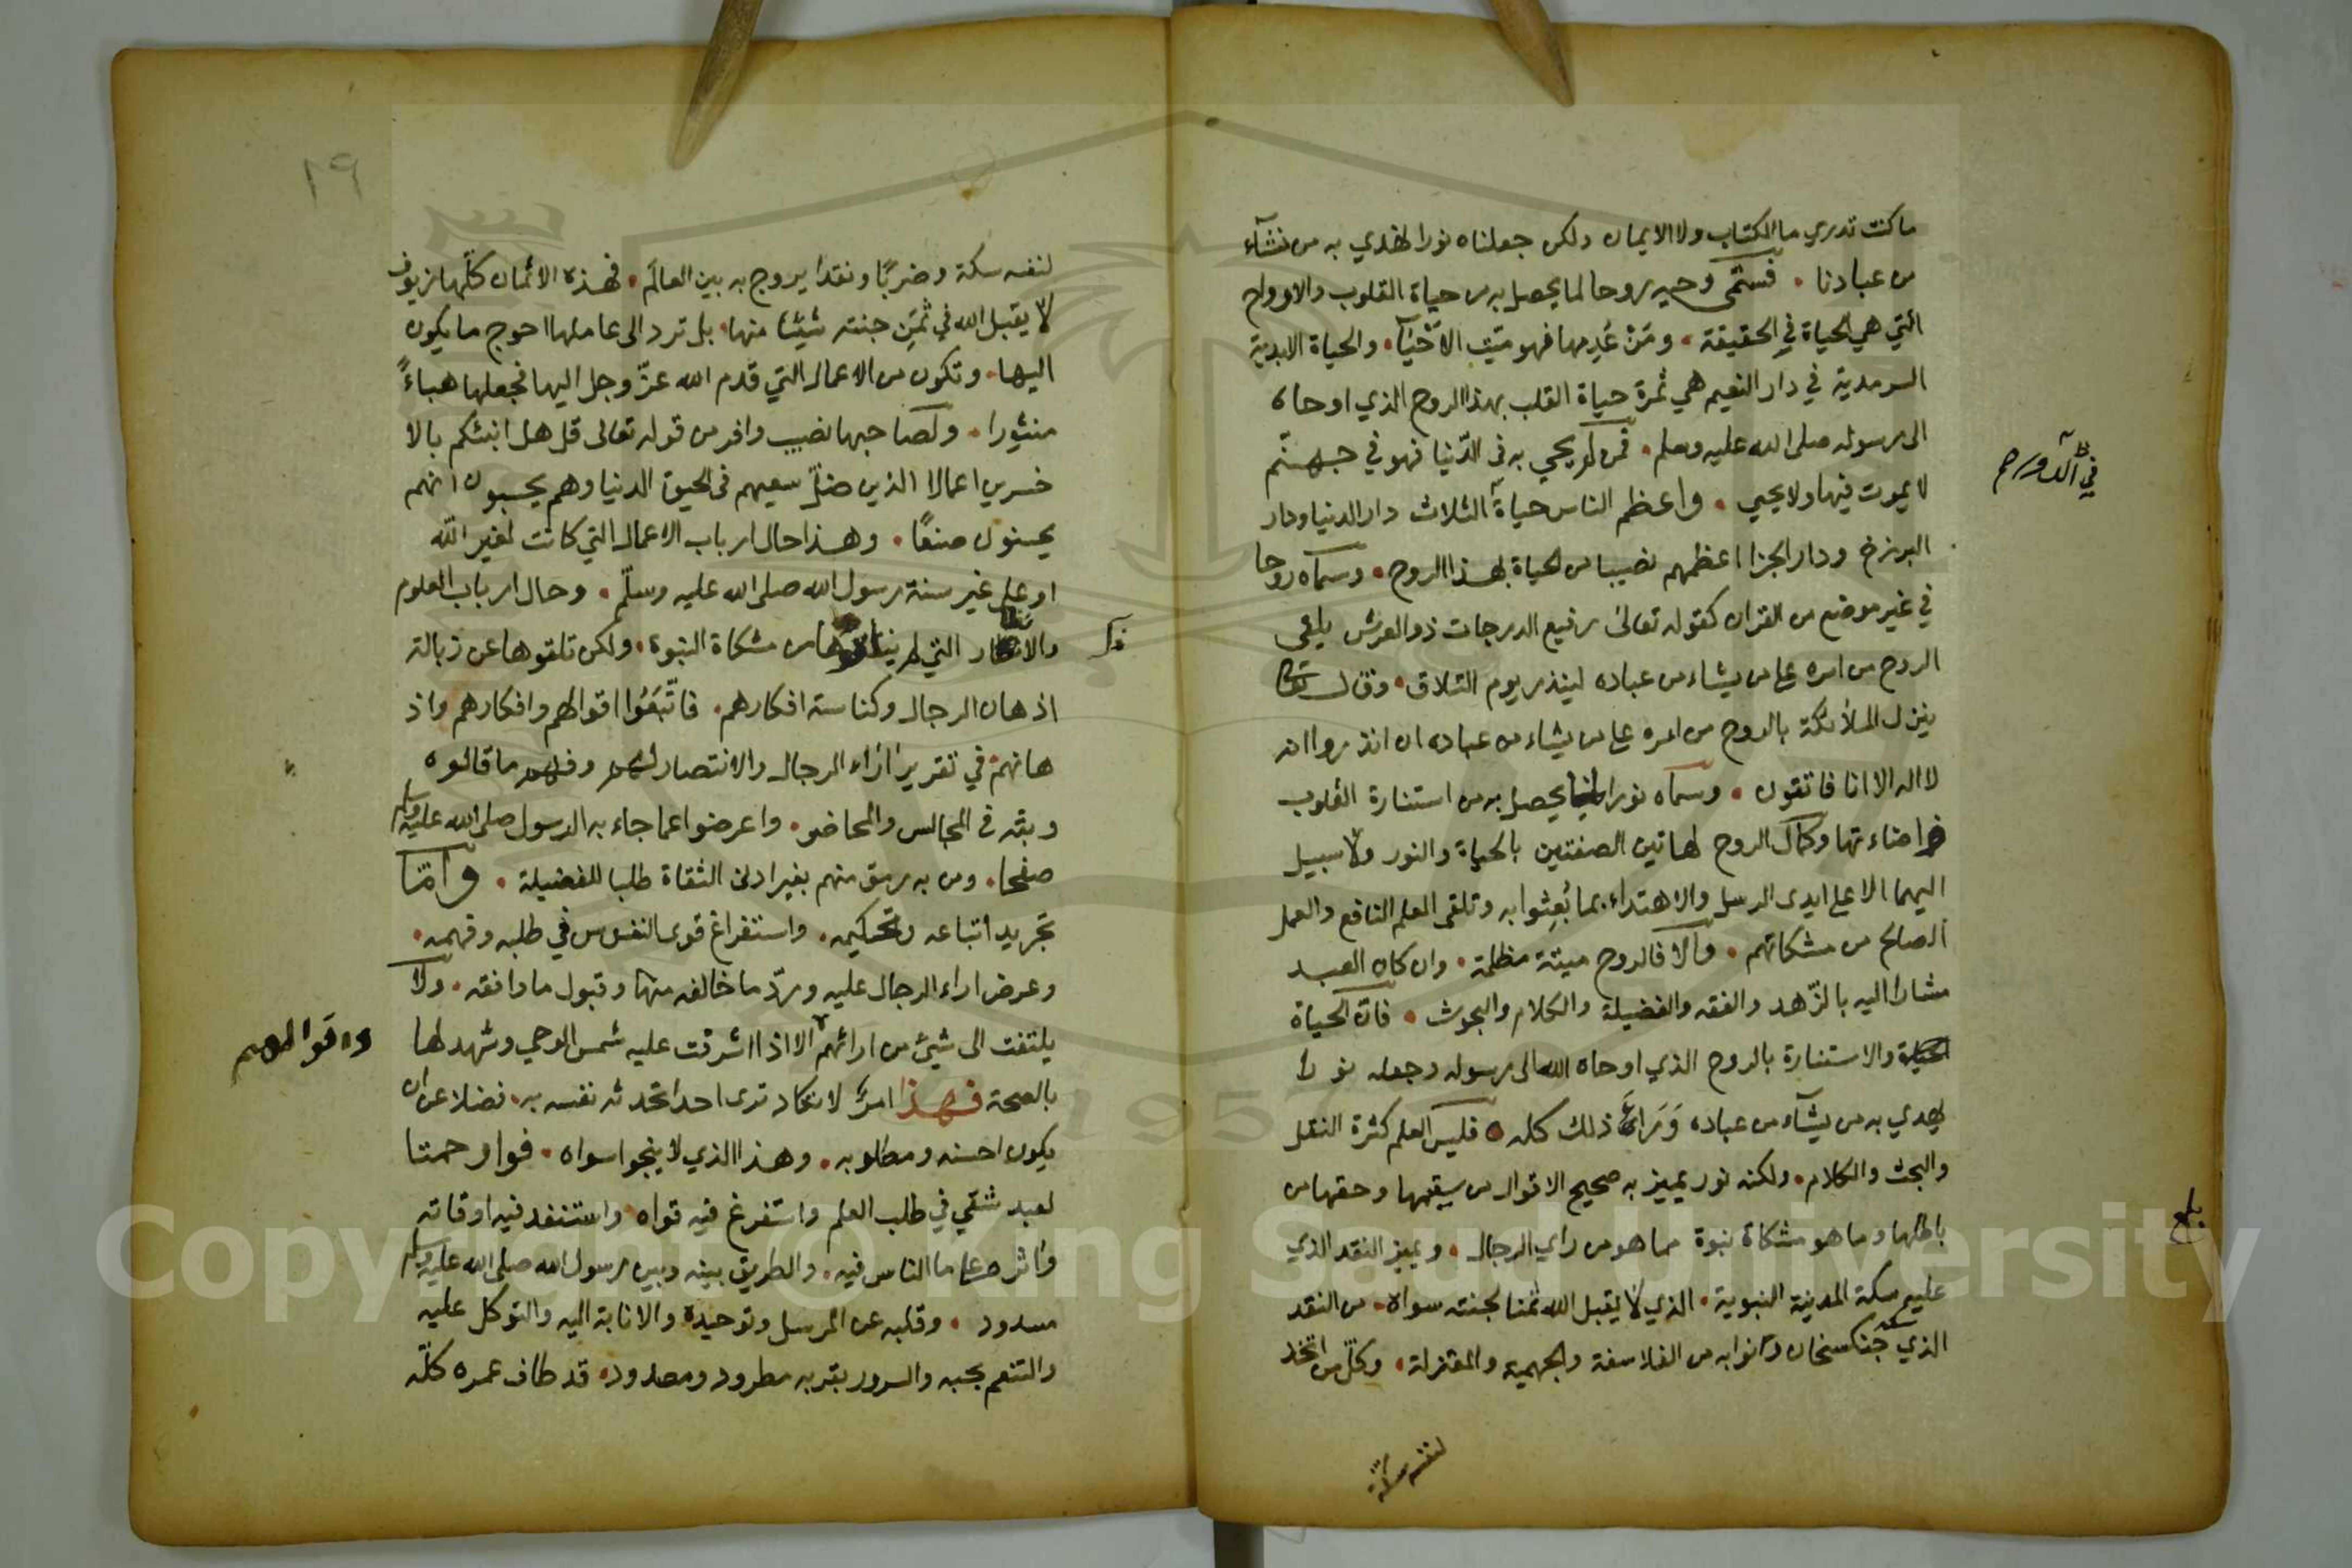 ما كنت تدري ما الكتاب ولا الايمان ولكن جعلناه نورا نهدي به من نشآء
من عبادنا . فسمّى وحيه روحا لما يحصل به من حياة القلوب والارواح
التي هي الحياة في الحقيقة . ومَنْ عَدِمها فهو ميّت الاحْيَآء . والحياة الابدية
السرمدية في دار النعيم هي ثمرة حياة القلب بهذا الروح الذي اوحاه
الى رسوله صلى الله عليه وسلم . فمن لم يحي به في الدّنيا فهو في جهنّم
لا يموت فيها ولا يحيي . واعظم الناس حياة الثلاث دار الدنيا ودار
في الدور
البرزخ ودار الجزا اعظمهم نصيبا من الحياة بهذا الروح . وسمّاه روحا
في غير موضع من القران كقوله تعالى رفيع الدرجات ذو العرش يلقى
الروح من امره على من يشاء من عباده لينذر يوم التلاق . وقال تعالى
ينزل الملائكة بالروح من امره على من يشاء من عباده ان انذروا انه
لا اله الا انا فاتقون . وسماه نورا لما يحصل به من استنارة القلوب
واضاءتها وكمال الروح لهاتين الصفتين بالحياة والنور ولا سبيل
اليهما الا على ايدي الرسل والاهتداء بما بُعِثوا به وتلقى العلم النافع والعمل
الصالح من مشكاتهم . والا فالروح ميتة مظلمة . وان كان العبد
مشارا اليه بالزّهد والفقه والفضيلة والكلام والبحوث . فان الحياة
والاستنارة بالروح الذي اوحاه الله الى رسوله وجعله نورا
يهدي به من يشآء من عباده وَرَاءَ ذلك كله . فليس العلم كثرة النقل
والبحث والكلام . ولكنه نور يميز به صحيح الاقوال من سقيمها وحقها من
باطلها وما هو مشكاة نبوة مما هو من راي الرجال . ويميز النقد الذي
بلغ
عليه سكة المدينة النبوية . الذي لا يقبل الله ثمنا لجنته سواه . من النقد
الذي سكه جنكسخان ونوابه من الفلاسفة والجهميه والمعتزلة . وكلّ من اتخذ
لنفسه سكة
١٩
لنفسه سكة وضربًا ونقدا يروج به بين العالَم . فهذه الاثمان كلّها زيوف
لا يقبل الله في ثمَنِ جنته شيئا منها . بل ترد الى عاملها احوج ما يكون
اليها . وتكون من الاعمال التي قدم الله عزّ وجل اليها فجعلها هباءً
منثورا . ولصاحبها نصيب وافر من قوله تعالى قل هل انبئكم بالا
خسرين اعمالا الذين ضلّ سعيهم في الحيوة الدنيا وهم يحسبون انهم
يحسنون صنعًا . وهذا حال ارباب الاعمال التي كانت لغير الله
او على غير سنة رسول الله صلى الله عليه وسلّم . وحال ارباب العلوم
والانظار التي لم يتلقوها من مشكاة النبوة . ولكن تلقوها عن زبالة
اذهان الرجال وكناسة افكارهم . فاتّبعُوا اقوالهم وافكارهم واذ
هانهم في تقرير اراء الرجال والانتصار لهم وفهم ما قالوه
وبثه في المجالس والمحاضر . واعرضوا عما جاء به الرسول صلى الله عليه وسلم
صفحا . ومن به رمق منهم يغير ادنى الثقاة طلبا للفضيلة . وامّا
تجريد اتباعه وتحكيمه . واستفراغ قوى النفوس في طلبه وفهمه .
وعرض اراء الرجال عليه وردّ ما خالفه منها وقبول ما وافقه . ولا
يلتفت الى شيئ من ارائهم الا اذا اشرقت عليه شمس الوحي وشهد لها
واقوالهم
بالصحة فهذا امرٌ لا تكاد ترى احدا تحدثه نفسه به . فضلا عن ان
يكون احسنه ومطلوبه . وهذا الذي لا ينجو اسواه . فوا رحمتا
لعبد شقي في طلب العلم واستفرغ فيه قواه واستنفد فيه اوقاته
واثره على ما الناس فيه . والطريق بينه وبين رسول الله صلى الله عليه وسلم
مسدود . وقلبه عن المرسل وتوحيده والانابة اليه والتوكل عليه
والتنعم بحبه والسرور بقربه مطرود ومصدود . قد طاف عمره كلّه
Copyright © King Saud University
1957